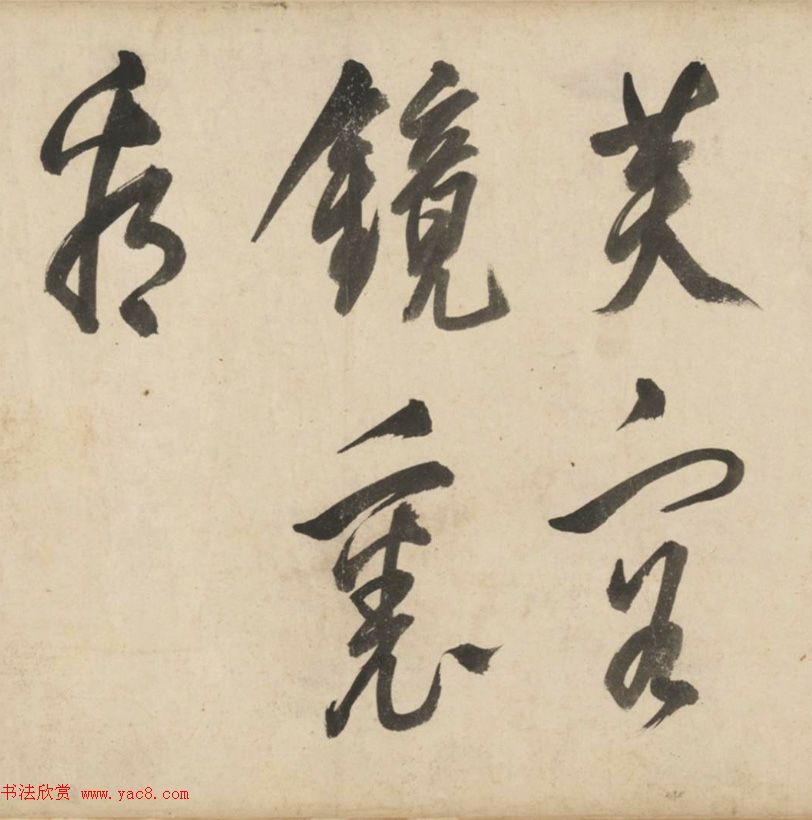 芙容
鏡裏
看
书法欣赏 www.yac8.com